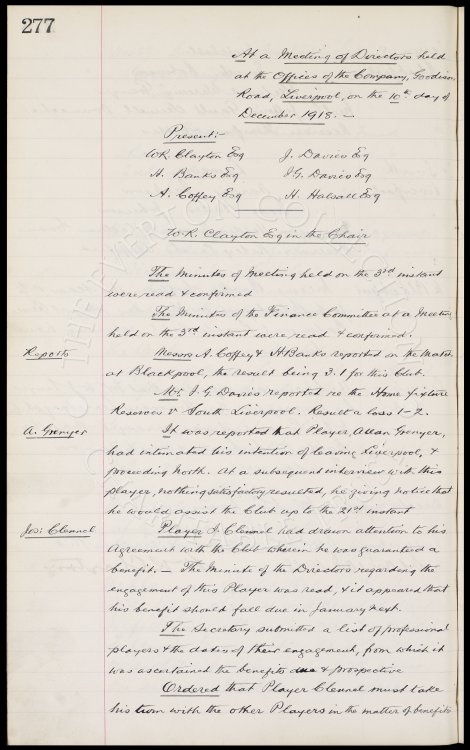 277
At a Meeting of Directors held
at the Offices of the Company, Goodison
Road, Liverpool, on the 10th day of
December 1918. –
Present:-
W.R. Clayton Esq J. Davies Esq
A. Banks Esq J.G. Davies Esq
A. Coffey Esq H. Halsall Esq
W.R. Clayton Esq in the Chair
The Minutes of Meeting held on the 3rd instant
were read & confirmed
The Minutes of the Finance Committee at a Meeting
held on the 3rd instant were read & confirmed.
Reports
Messrs A. Coffey & A Banks reported on the Match
at Blackpool, the result being 3.1 for this Club.
Mr J.G. Davies reported re the Home fixture
Reserves v South Liverpool. Result a loss 1-2.
A. Grenyer
It was reported that Player, Allan Grenyer,
had intimated his intention of leaving Liverpool, &
proceeding North. At a subsequent interview with this
player, nothing satisfactory resulted, he giving notice that
he would assist the Club up to the 21st instant
Jos: Clennel
Player J. Clennel had drawn attention to his
Agreement with the Club wherein he was guaranteed a
benefit. – The Minute of the Directors regarding the
engagement of this Player was read, & it appeared that
his benefit should fall due in January next.
The Secretary submitted a list of professional
players & the dates of their engagement, from which it
was ascertained the benefits due & prospective
Ordered that Player Clennel must take
his turn with the other Players in the matter of benefits
THE EVERTON COLLECTION